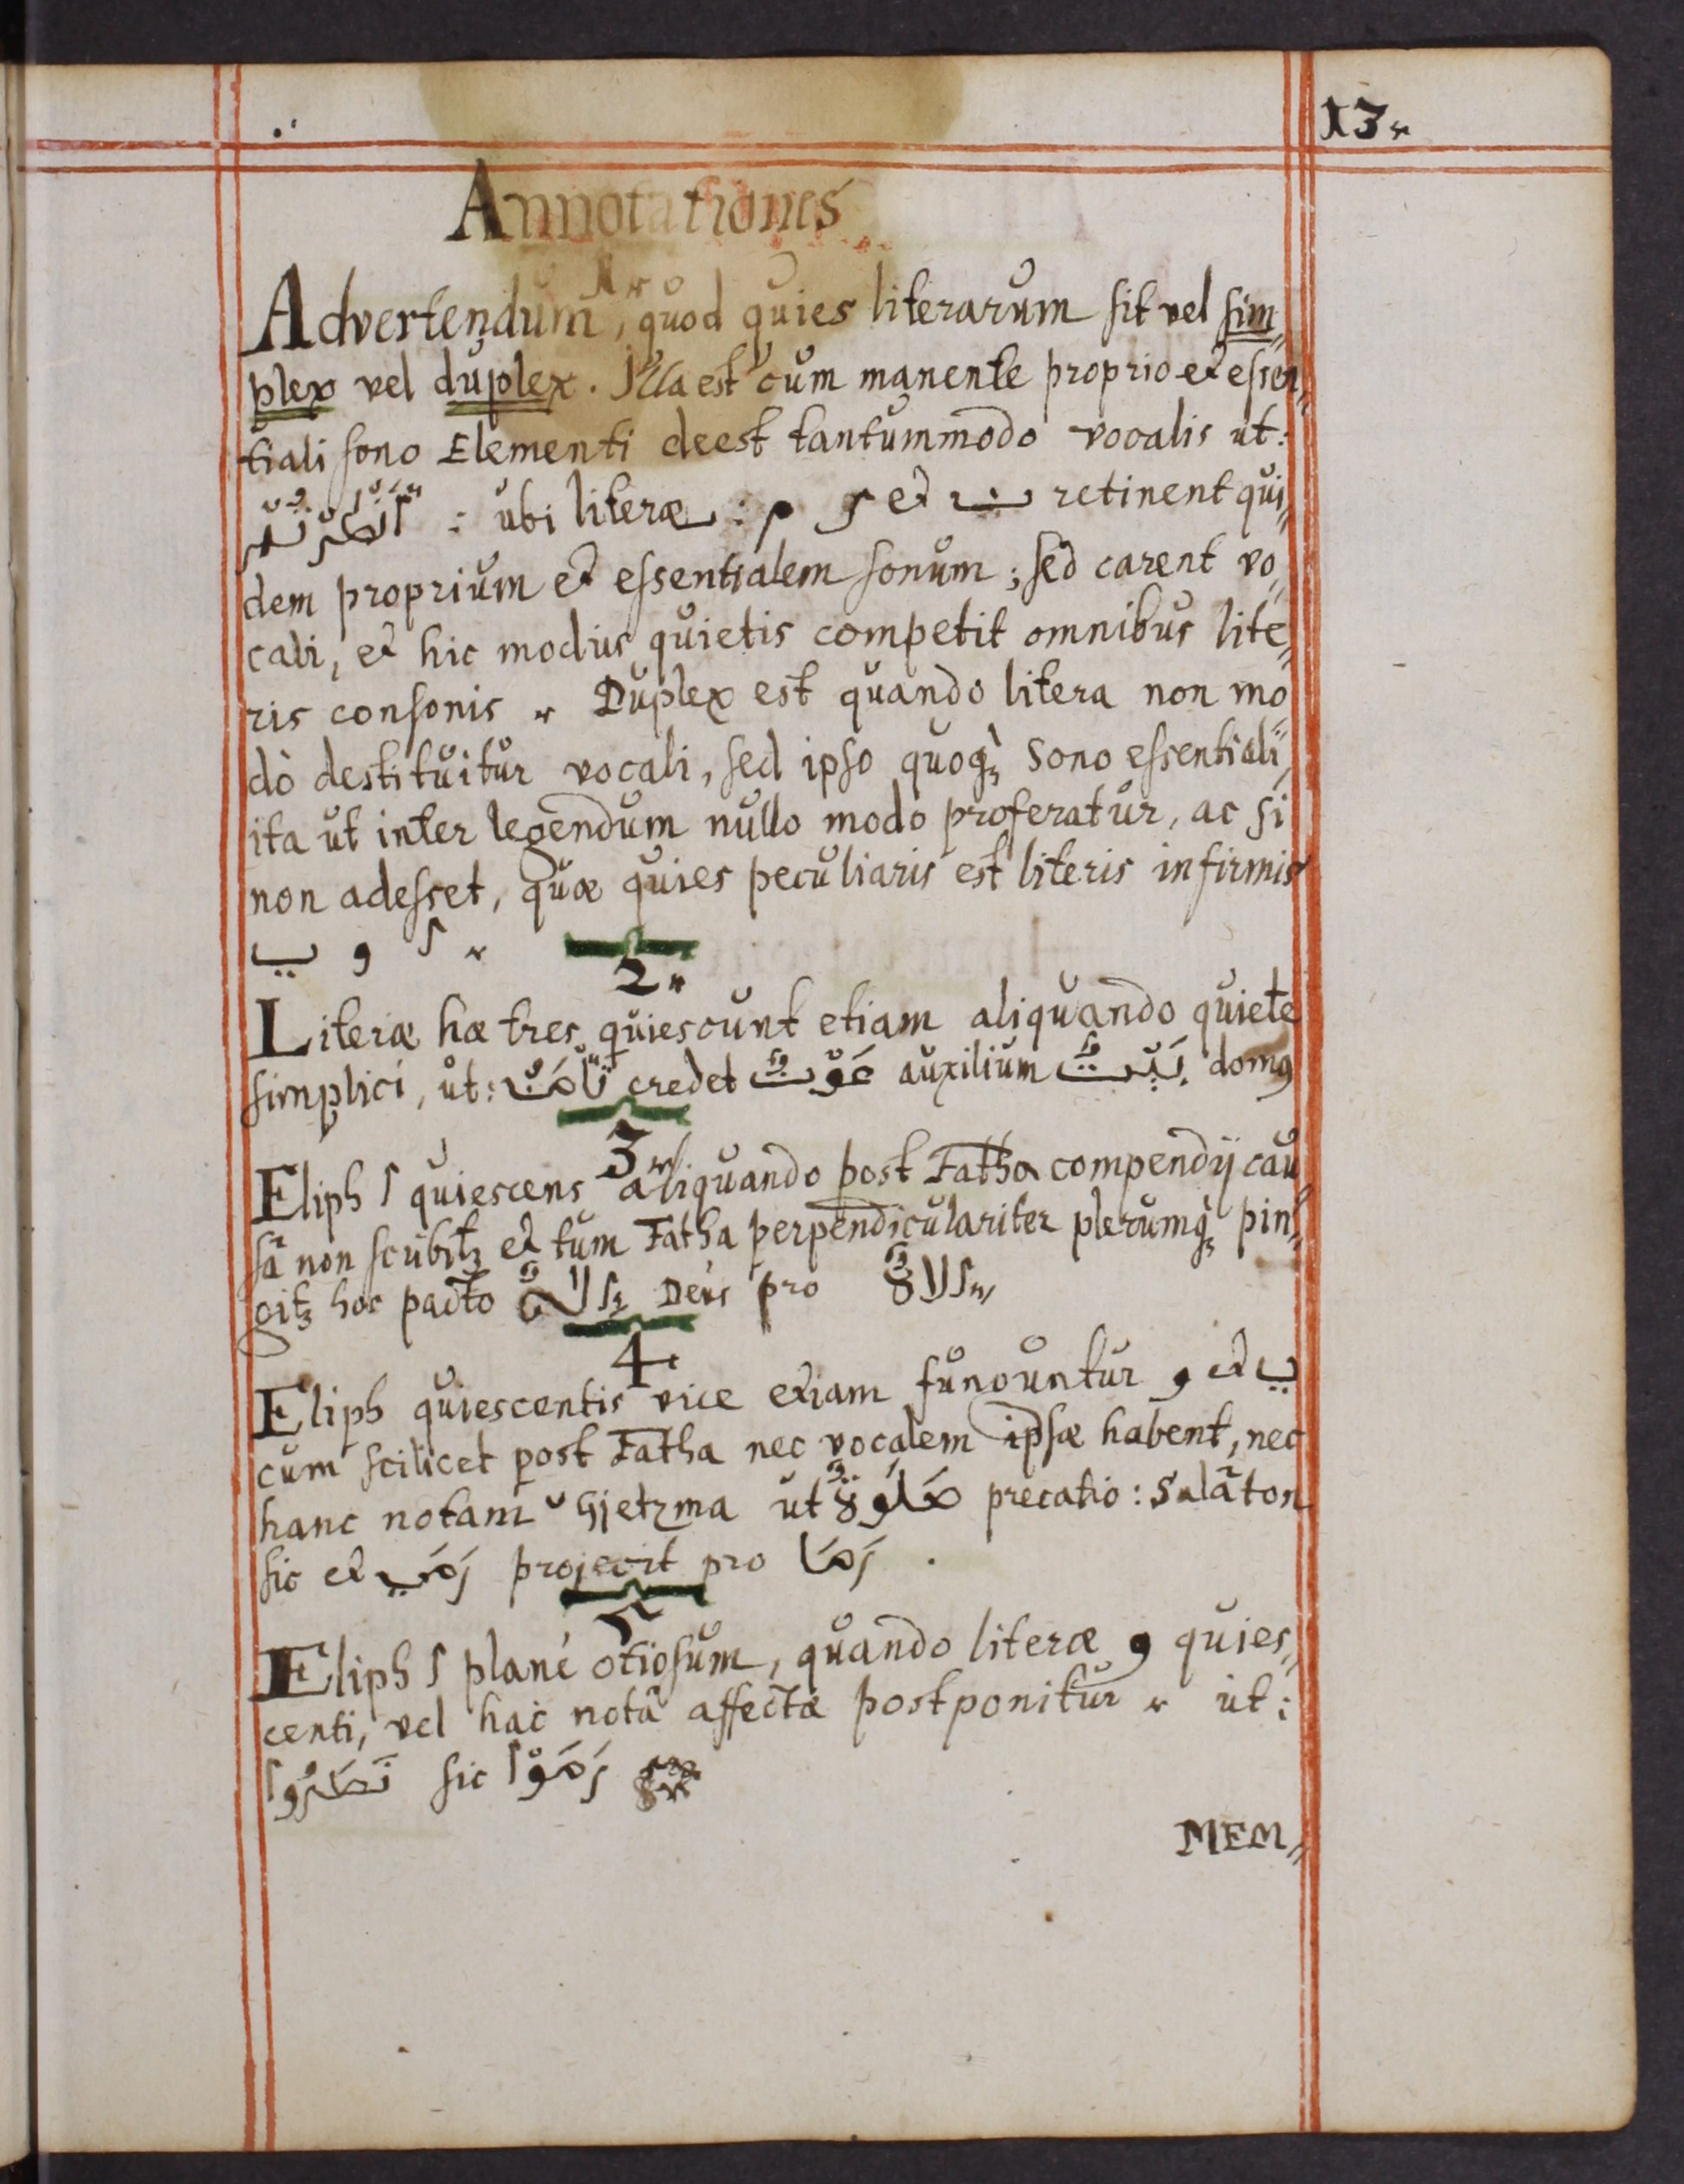 13.
Annotationes
1.
Advertendum, quod quies literarum sit vel sim„
plex vel duplex. Illa est cum manente proprio et essen„
tiali sono Elementi deest tantummodo vocalis ut:
: ubi literæ : م ر et ن retinent qui„
dem proprium et essentialem sonum; sed carent vo„
cali, et hic modus quietis competit omnibus lite„
ris consonis. Duplex est quando litera non mo„
dò destituitur vocali, sed ipso quoq; sono essentiali,
ita ut inter legendum nullo modo proferatur, ac si
non adesset, quæ quies peculiaris est literis infirmis
ا و ي
2.
Literæ hæ tres quiescunt etiam aliquando quiete
simplici, ut: credet غَوْثٌ auxilium بَيْتٌ domus
3.
Eliph ا quiescens aliquando post Fatha compendij cau
sâ non scribitʒ et tum Fatha perpendiculariter plerumq; pin„
gitʒ hoc pacto اللهُ Deus pro اللاهُ
4.
Eliph quiescentis vice etiam funguntur و et ي
cum scilicet post Fatha nec vocalem ipsæ habent, nec
hanc notam ْ Gjetzma ut صَلَوةٌ precatio: Salâton
sic et رَمَي projecit pro رَمَا .
5
Eliph ا planè otiosum, quando literæ و quies„
centi, vel hac notâ affectæ postponitur. ut:
نَصَرُوا sic رَمَوْا
MEM„